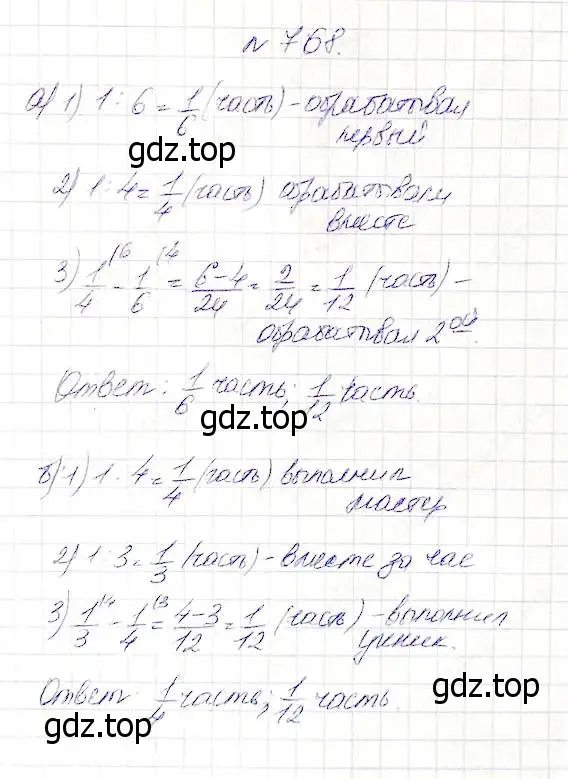 № 768.
а) 1) 1 : 6 = 1/6 (часть) - обрабатывал
первый
2) 1 : 4 = 1/4 (часть) обрабатывали
вместе
3) 1/4 - 1/6 = 6-4/24 = 2/24 = 1/12 (часть) -
обрабатывал 2ой.
Ответ: 1/6 часть; 1/12 часть.
б) 1) 1 : 4 = 1/4 (часть) выполнил
мастер
2) 1 : 3 = 1/3 (часть) - вместе за час
3) 1/3 - 1/4 = 4-3/12 = 1/12 (часть) - выполнил
ученик.
Ответ: 1/4 часть; 1/12 часть.
gdz.top
gdz.top
gdz.top
gdz.top
gdz.top
gdz.top
gdz.top
gdz.top